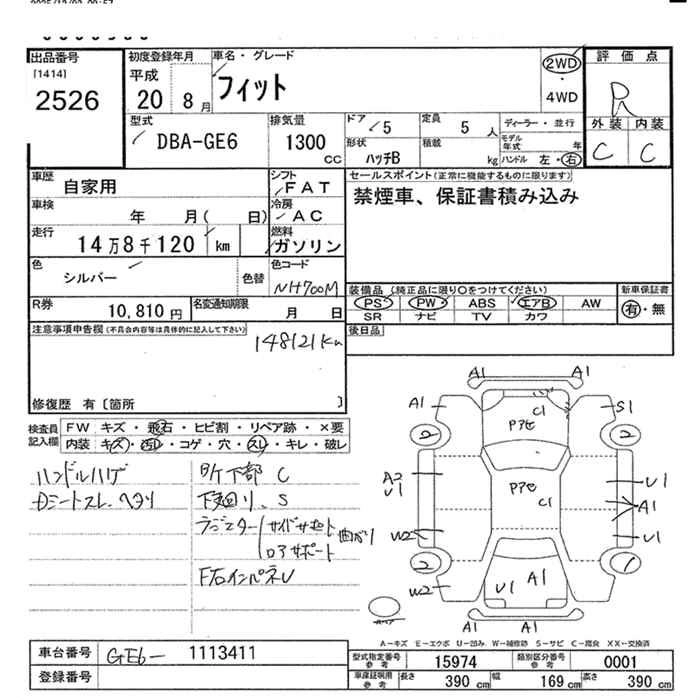 出品番号
[1414]
2526
初度登録年月
平成
20 8月
車名・グレード
フィット
2WD
・
4WD
評価点
R
外装 内装
C C
型式
DBA-GE6
排気量
1300
cc
ドア
5
定員
5人
ディーラー・並行
モデル年式 年
形状
ハッチB
積載
kg
ハンドル 左・右
車歴
自家用
シフト
FAT
セールスポイント(正常に機能するものに限ります)
禁煙車、保証書積み込み
車検
年 月( 日)
冷房
AC
走行
14万8千120 km
燃料
ガソリン
色
シルバー
色替
色コード
NH700M
装備品 (純正品に限り○をつけてください)
新車保証書
PS PW ABS エアB AW
有・無
SR ナビ TV カワ
R券
10,810円
名変通知期限
月 日
後日品
注意事項申告欄(不具合内容等は具体的に記入して下さい)
148121Km
修復歴 有〔箇所 〕
検査員記入欄
FW キズ・飛石・ヒビ割・リペア跡・×要
内装 キズ・汚レ・コゲ・穴・スレ・キレ・破レ
ハンドルハゲ
Dシートスレ、ヘタリ
下部 C
下廻り、S
サイドサポート
ロアサポート
曲がり
F右インパネU
A1 A1
A1 S1
C1
Pアセ
2 2
A2
U1
Pアセ
C1
U1
A1
W2 U1
2 1
W2
U1 A1
A1 A1
A-キズ E-エクボ U-凹み W-補修跡 S-サビ C-腐食 XX-交換済
車台番号
GE6- 1113411
登録番号
型式指定番号
参考
15974
類別区分番号
参考
0001
車庫証明用
参考
長さ
390 cm
幅
169 cm
高さ
390 cm